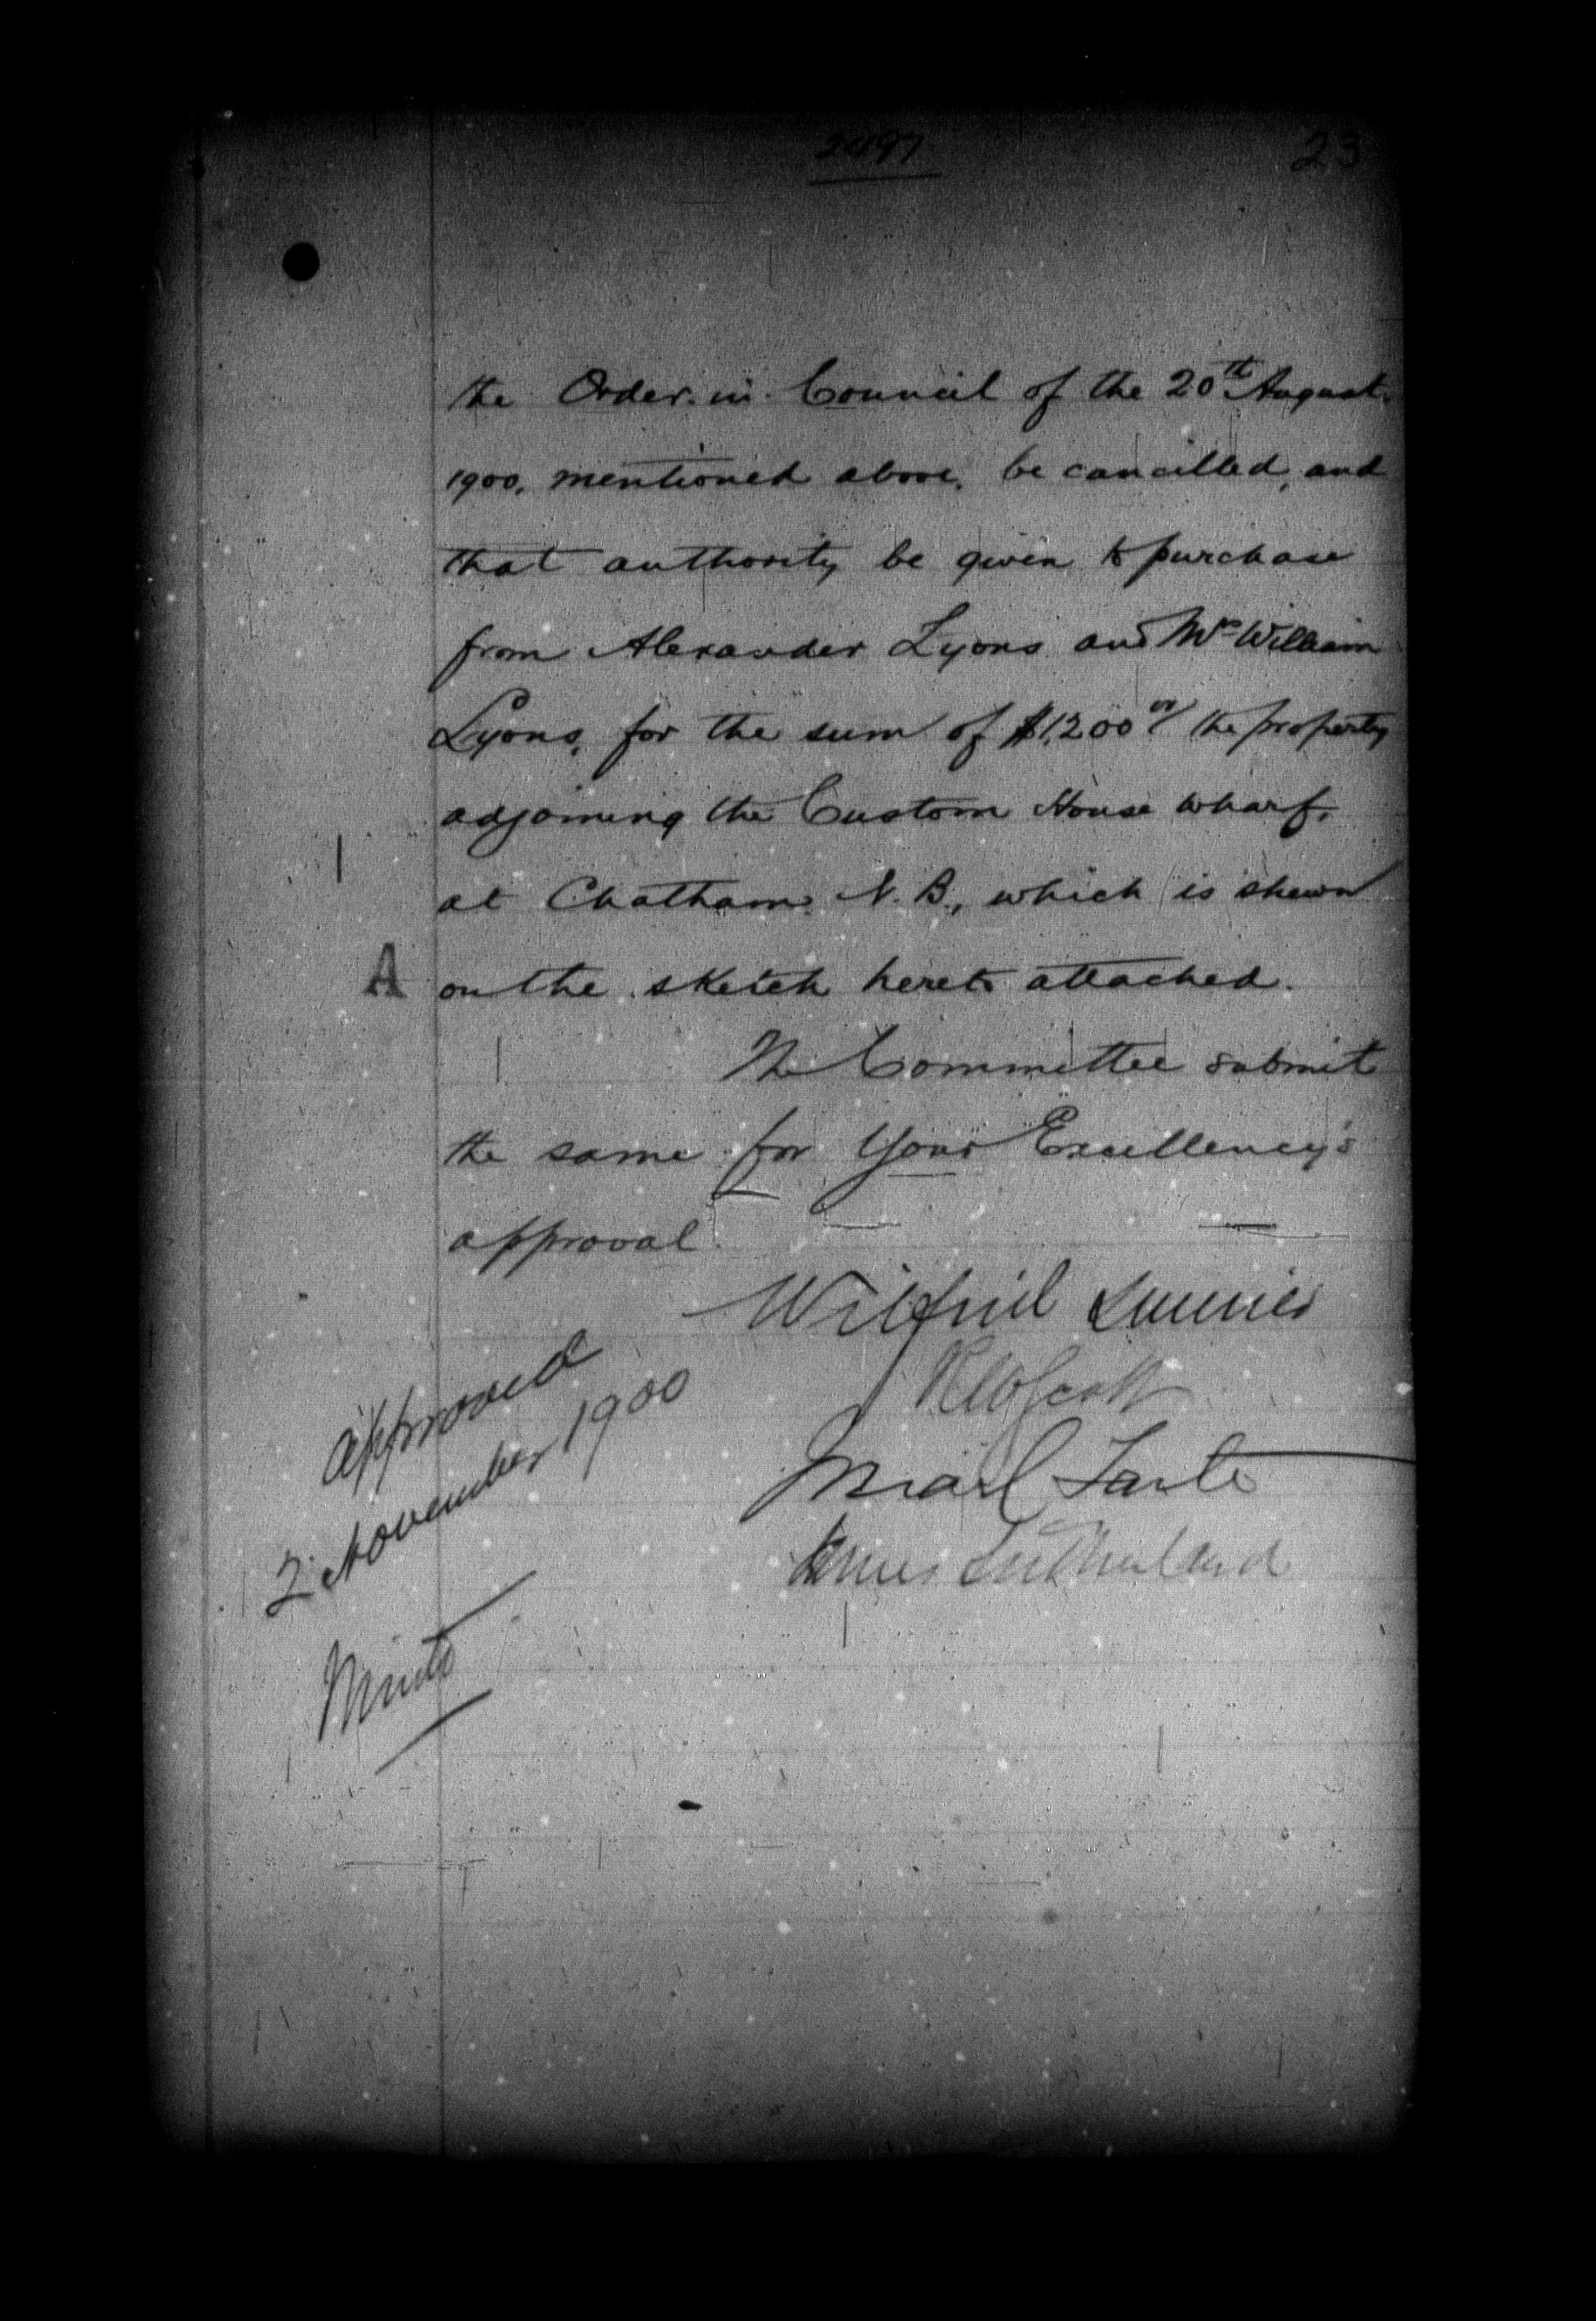 2497
23
the Order in Council of the 20th August
1900, mentioned above, be cancelled, and
that authority be given to purchase
from Alexander Lyons and Mrs William
Lyons, for the sum of $1,200 00/ the property
adjoining the Custom House wharf,
at Chatham N.B., which is shewn
A on the sketch hereto attached.
The Committee submit
the same for Your Excellency's
approval.
Wilfrid Laurier
RWScott
J Israel Tarte
James Sutherland
approved
2 November 1900
Minto